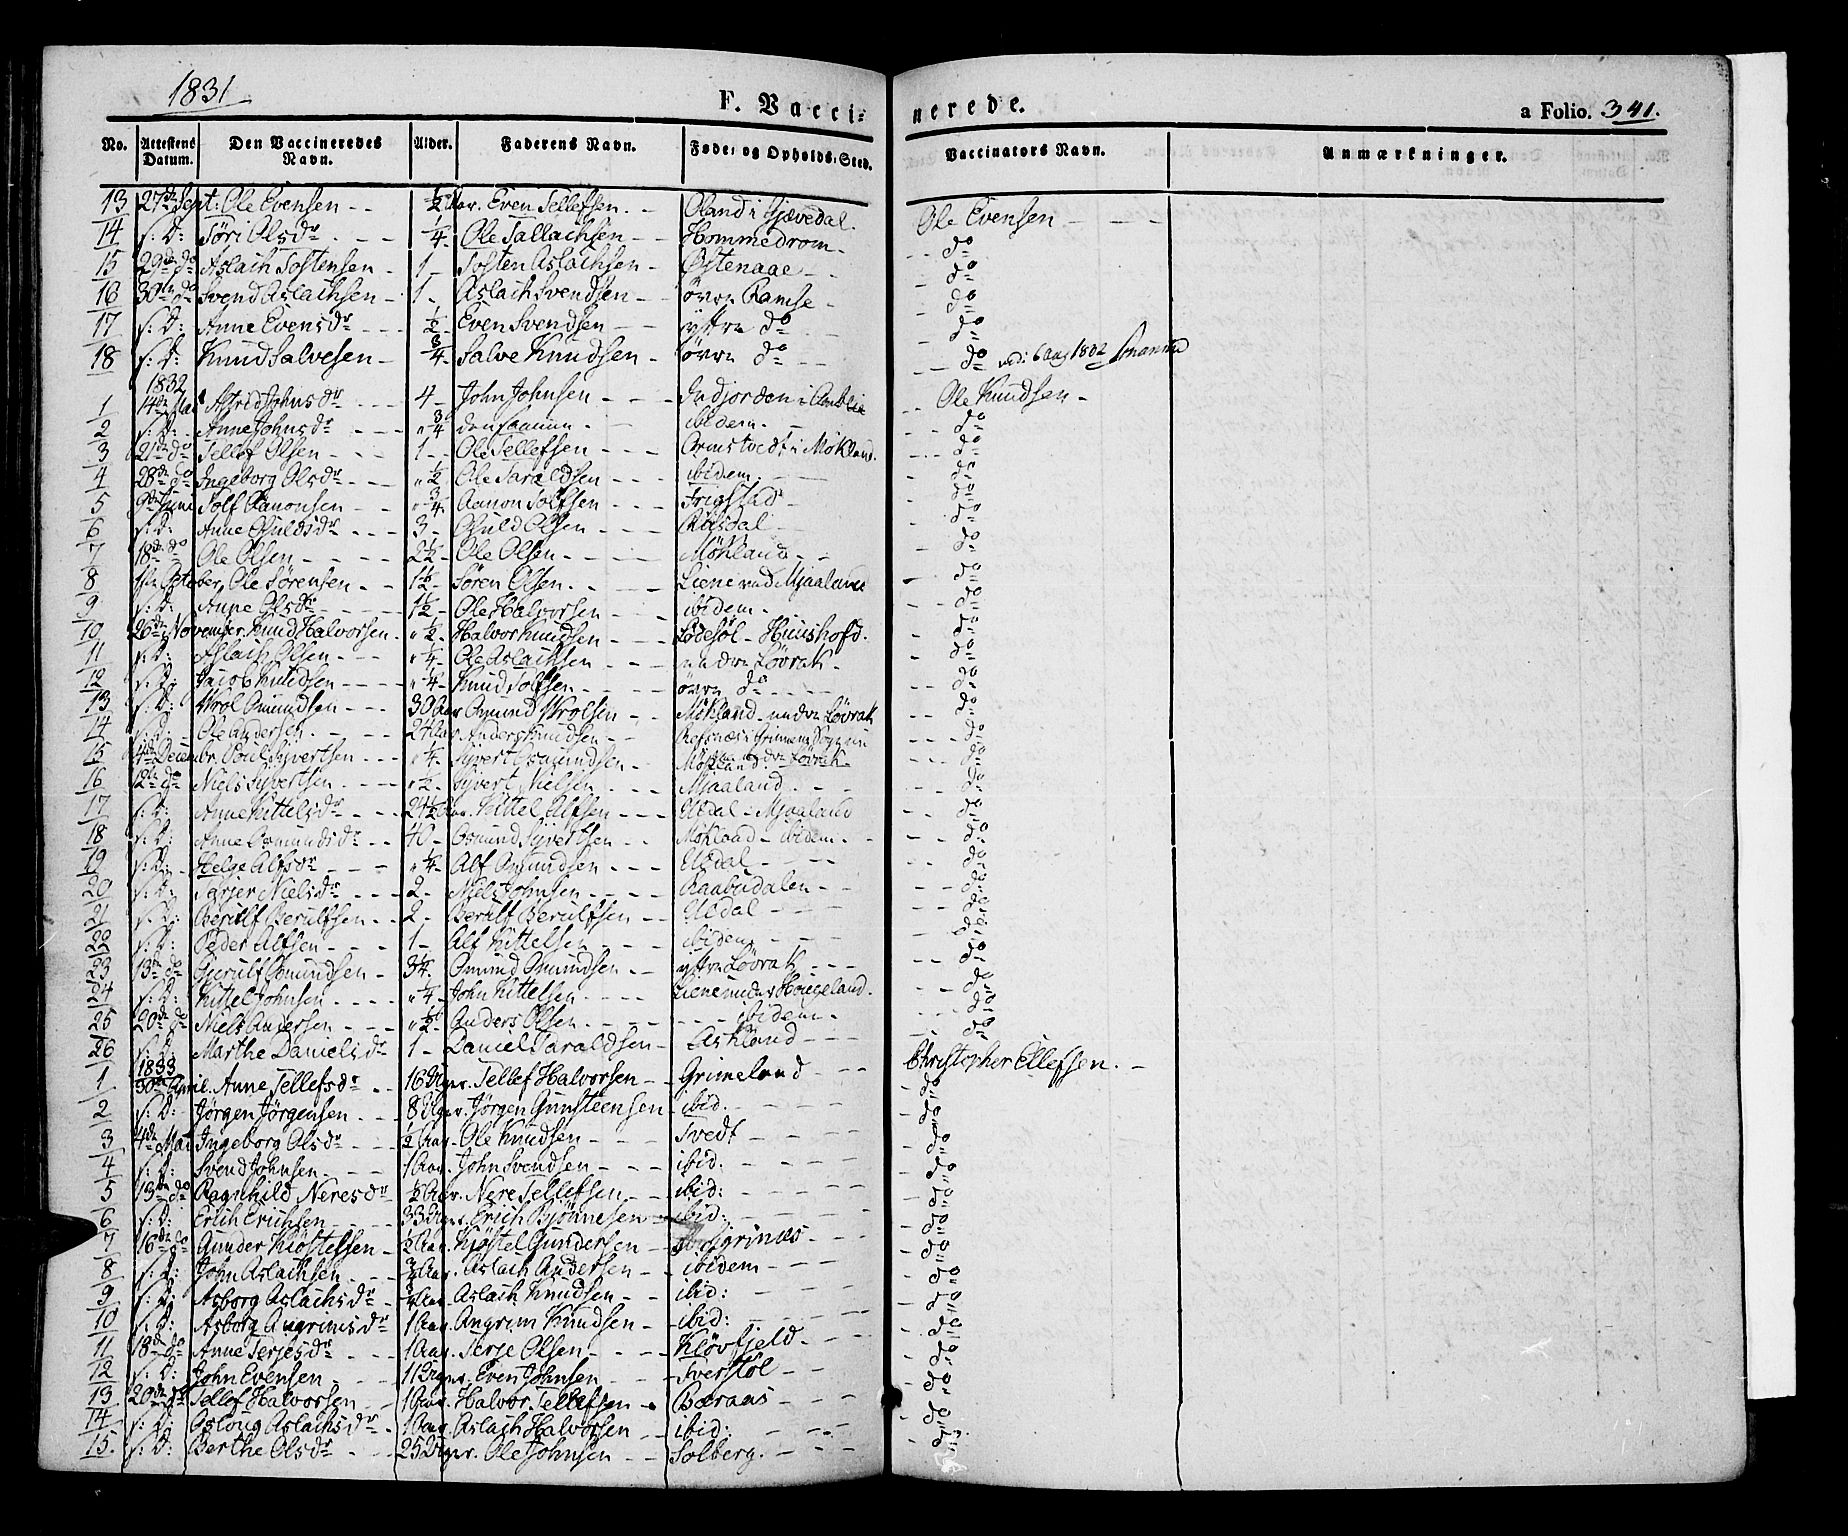 1831
F. Vacci= nerede. a Folio. 341.
No. Attestens Datum. Den Vaccineredes Navn. Alder. Faderens Navn. Føde= og Opholds=Sted. Vaccinators Navn. Anmærkninger.
13 27de Sept: Ole Evensen - - ½ Aar. Even Tellefsen. - Oland i Gjævedal. Ole Evensen - - -
14 s: D: Töri Olsdr - - ¼ - Ole Tallachsen - Hommedrom - - - do
15 29de do Aslach Tostensen - 1 - Tosten Aslachsen - Østenaae - - - do
16 30te do Svend Aslachsen - 1 - Aslach Svendsen - - övre Ramse - - do
17 s: D: Anne Evensdr - - - ½ - Even Svendsen - - yttre do - - - do
18 s: D: Knud Salvesen - ¾ - Salve Knudsen - - övre do - - - do 6 Aug 1832
1832
1 14de Mai Astrid Johnsdr - - - 4 - John Johnsen - - - Indjorden i Ole Knudsen -
2 s: D: Anne Johnsdr - - - " ¾ den samme - - ibidem. - - - do
3 21de do Tellef Olsen - - - 1 - - Ole Tellefsen - - - Ormstvedt i Mökland. - - do
4 28de do Ingeborg Olsdr - - - " ½ - Ole Taraldsen - - - ibidem. - - - do
5 9de Juni Tolf Aanonsen - - " ¾ - Aanon Tolfsen - - Frigstad - - do
6 s: D: Anne Gjuldsdr - - - 3 - Gjuld Olsen - - - Riisdal - - do
7 18de do Ole Olsen - - - - 2½ - Ole Olsen - - - - Mökland - - - do
8 1ste October, Ole Sörensen - - 1½ - Sören Olsen. - - - Liene ved Mjaaland - do
9 s: D: Anne Olsdr - - - - 1½ - Ole Halvorsen - - ibidem. - - do
10 26de November. Knud Halvorsen. " ½ - Halvor Knudsen - - Lödesöl - Huushofd. - - do
11 s: D: Aslach Olsen - - - " ¼ - Ole Aslachsen - - - nedre Lövrak. - do
12 s: D: Jacob Knudsen - - - - " ¼ - Knud Tolfsen - - - - övre do - - - - - do
13 s: D: Wrol Omundsen - - - 30 Aar Omund Wrolsen - - Mökland nedre Lövrak - - do
14 s: D: Ole Andersen - - - - 24 Aar Anders Knudsen - - Refsnæs i - - do
15 4de Decembr. Poul Syvertsen - - - " ¼ - Syvert Osmundsen - Mökland nedre Lövrak - - do
16 12te do Niels Syvertsen - - - " ½ - Syvert Nielsen - - - Mjaaland - - - do
17 s: D: Anne Kittelsdr - - - 24½ Aar. Kittel Alfsen - - - Uedal - Mjaaland - do
18 s: D: Anne Osmundsdr - - 40 - Osmund Syvertsen - - Mökland - ibidem - - do
19 s: D: Helge Alfsdr - - - " ¼ - Alf Omundsen - - Uedal - - - - do
20 s: D: Tarjer Nielsdr - - - 2 - Niels Johnsen - - - - Raabudalen - - - do
21 s: D: Berulf Berulfsen - - 2 - Berulf Berulfsen - - Uedal - - - - do
22 s: D: Peder Alfsen - - - 1 - Alf Kittelsen - - - ibidem - - - - do
23 13de do Gjerulf Omundsen - 3¼ - Omund Omundsen - - yttre Lövrak - - - - do
24 s: D: Kittel Johnsen - - - - " ¼ - John Kittelsen - - - - Liene under Höigeland. - - do
25 20de do Niels Andersen - - - " ½ - Anders Olsen - - - - - - - ibidem - - do
26 s: D: Marthe Danielsdr - - 1 - Daniel Taraldsen - - Askland - - - do
1833
1 30te April. Anne Tellefsdr - - 16 Uger. Tellef Halvorsen - - Grimeland - - - Christopher Ellefsen. -
2 s: D: Jörgen Jörgensen - - 8 Uger. Jörgen Gunsteensen - ibid. - - - - do
3 4de Mai Ingeborg Olsdr - - ½ Aar. Ole Knudsen - - - Tvedt - - - - - do
4 s: D: Svend Johnsen. - - - 1 Aar. John Svendsen - - - ibid: - - - - do
5 13de do Ragnhild Neresdr - ½ Aar. Nere Tellefsen - - - ibid: - - - - do
6 s: D: Erich Erichsen - - - 33 Uger. Erich Björnesen - ibid: - - - - do
7 16de do Gunder Kiöstelsen - ½ Aar. Kiöstel Gundersen - - - - - do
8 s: D: John Aslachsen - - - ¾ Aar. Aslach Andersen - - ibidem - - - - do
9 s: D: Asborg Aslachsdr - Aar. Aslach Knudsen - - ibid: - - - do
10 s: D: Asborg Angrimsdr - 1 Aar. Angrim Knudsen - ibid: - - - - do
11 18de do Anne Terjesdr - - - 1 Aar. Terje Olsen - - - - Klövfjeld - - - - do
12 s: D: John Evensen - - - 11 Uger. Even Johnsen - - Tverstöl - - - do
13 20de do Tellef Halvorsen - - 1 Aar. Halvor Tellefsen - Beraas - - - - do
14 s: D: Aslaug Aslachsdr - - 1 Aar. Aslach Halvorsen - ibid: - - - - do
15. s: D: Berthe Olsdr - - - 25 Uger. Ole Johnsen - - Solberg. - - - - do